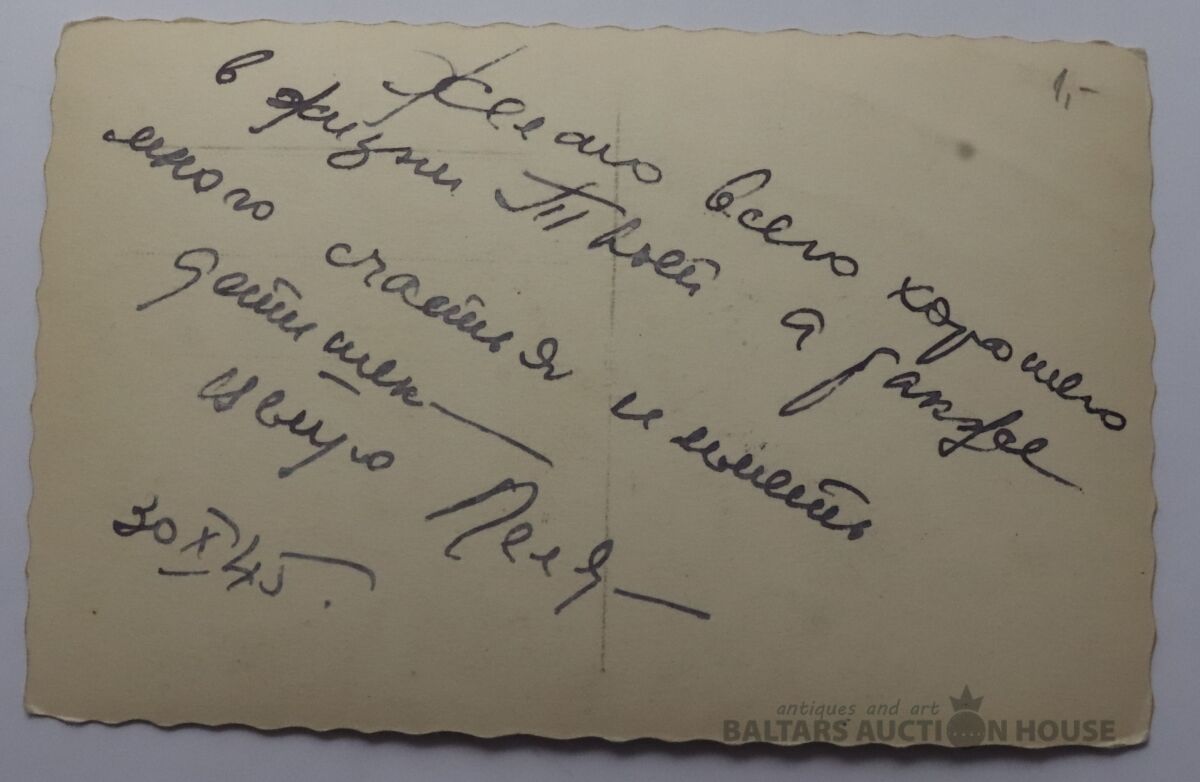 1,-
Желаю всего хорошего
в жизни Твоей а также
много счастья и иметь
детишек
целую Леля
30 X 45.
antiques and art
BALTARS AUCTION HOUSE